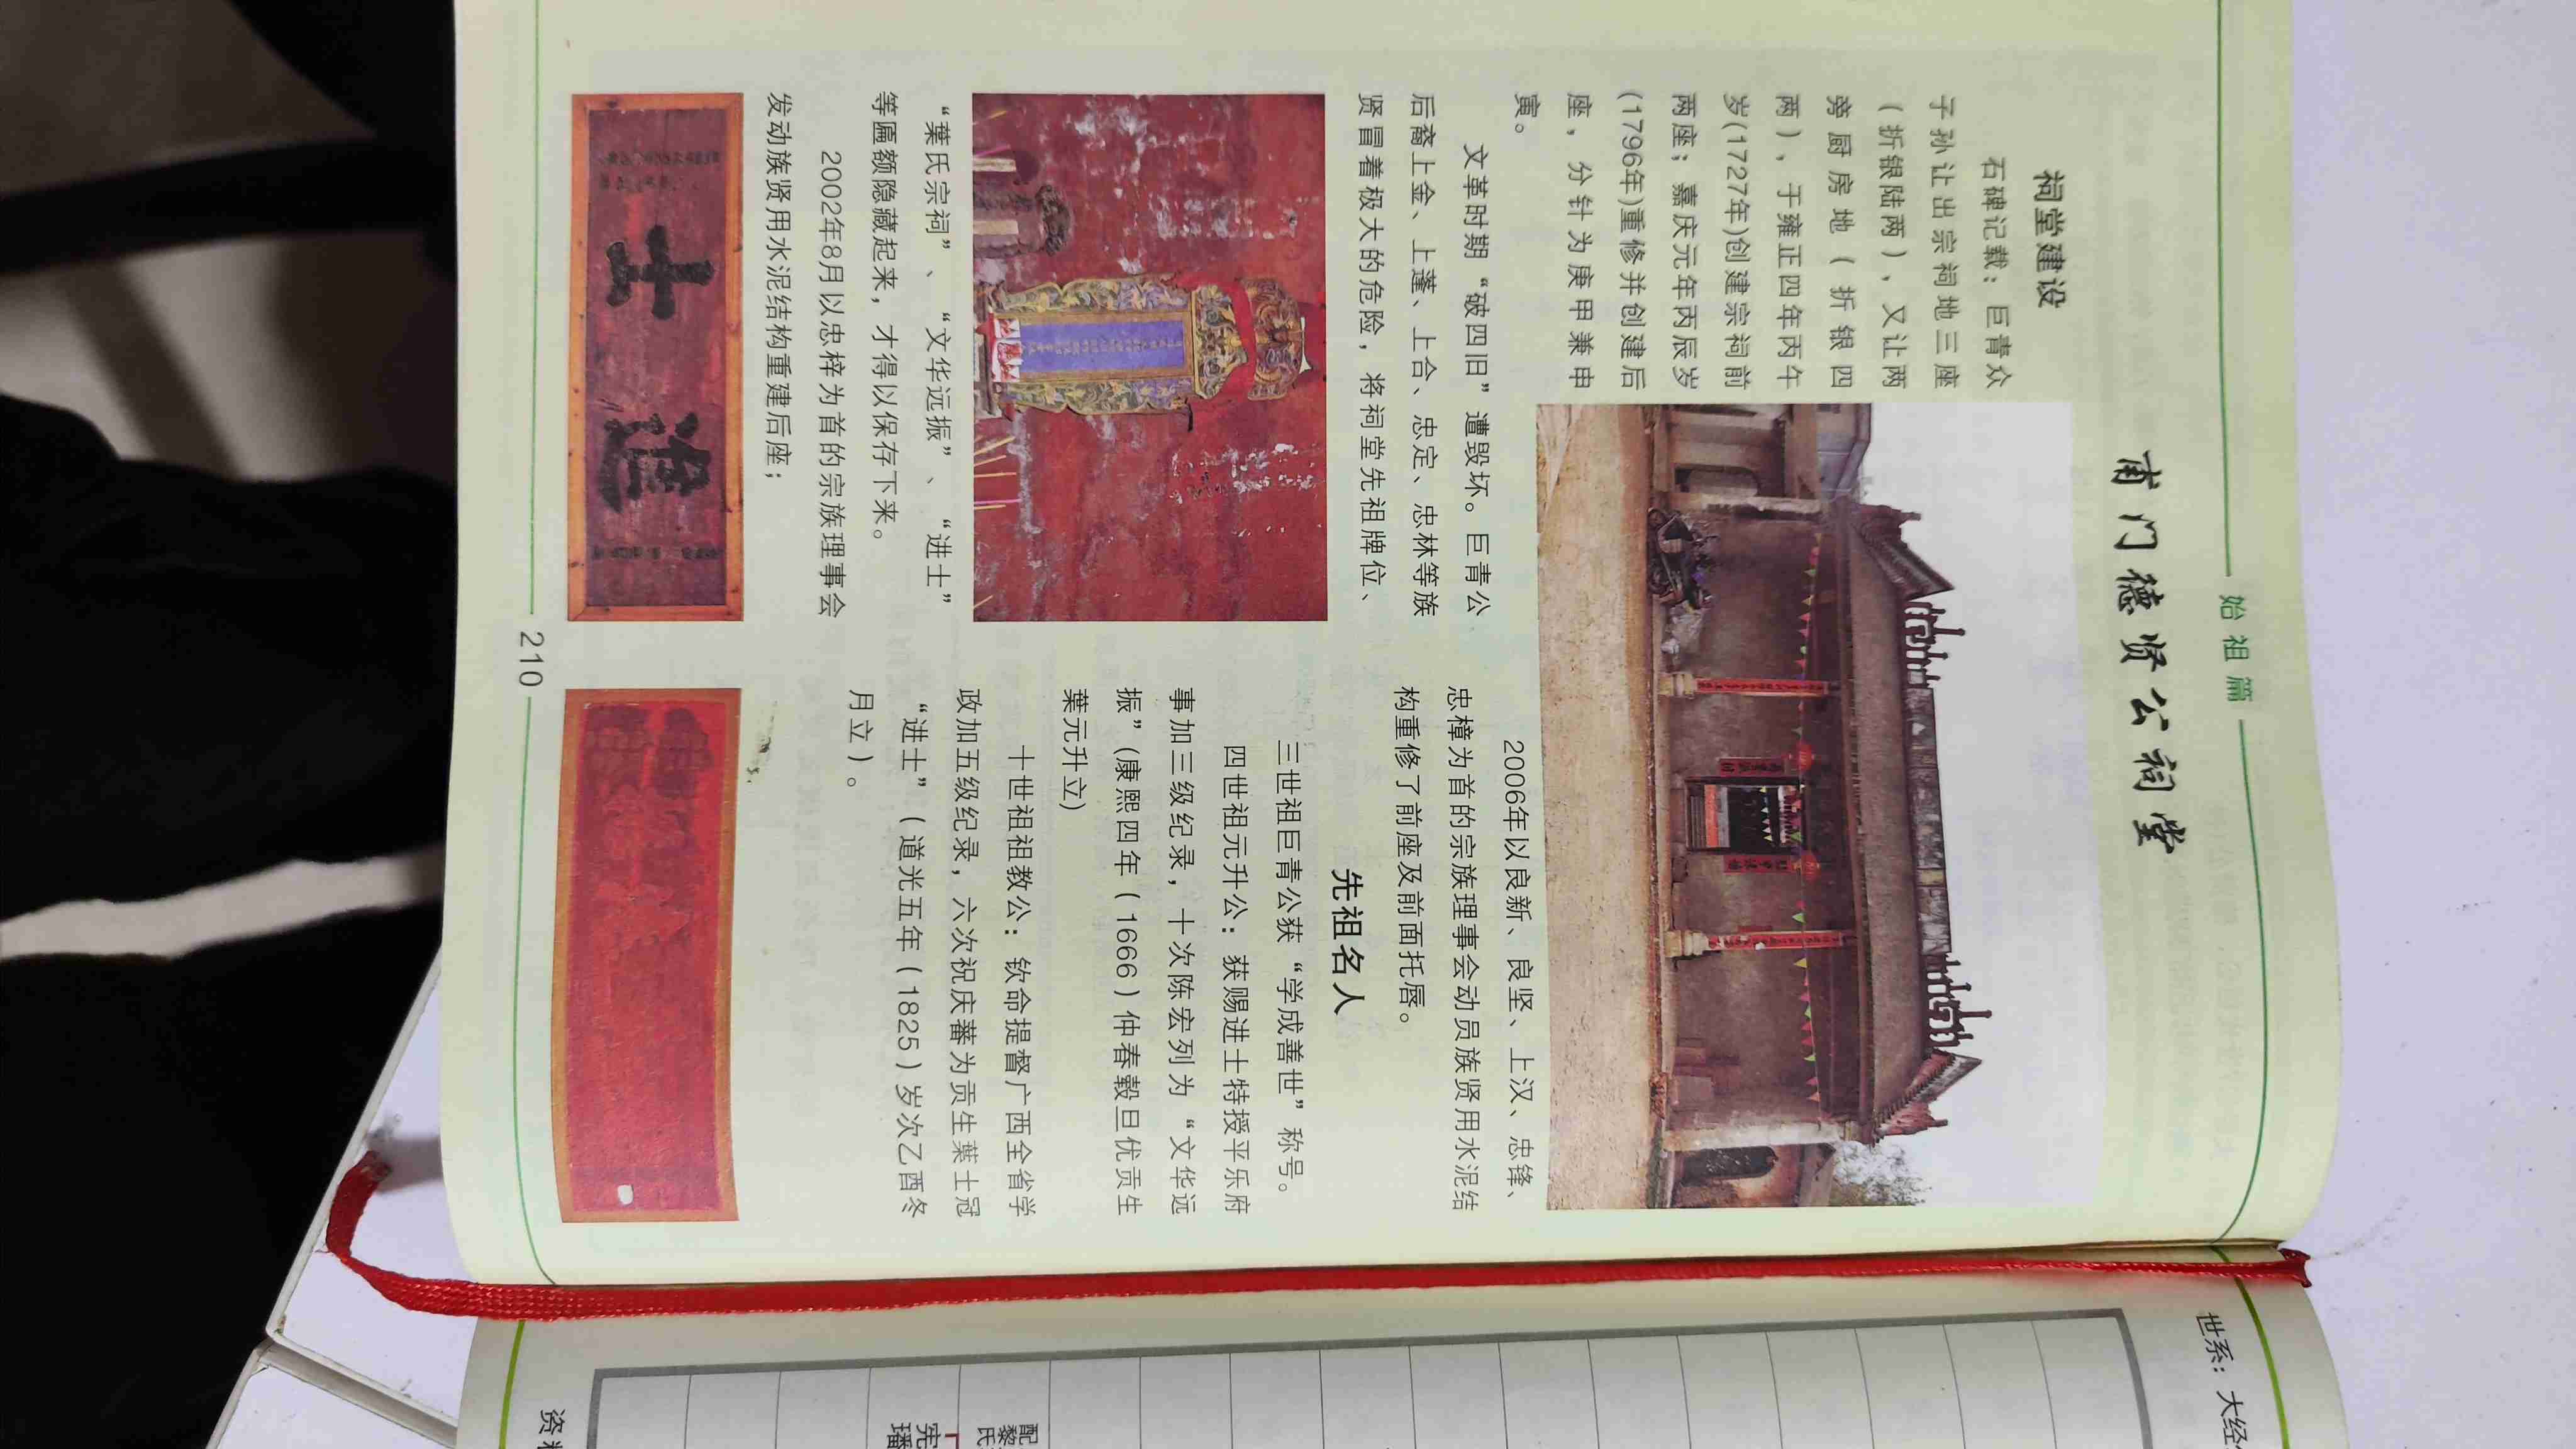 始祖篇
甫门德贤公祠堂
祠堂建设
石碑记载：巨青众
子孙让出宗祠地三座
（折银陆两），又让两
旁厨房地（折银四
两），于雍正四年丙午
岁(1727年)创建宗祠前
两座；嘉庆元年丙辰岁
(1796年)重修并创建后
座，分针为庚甲兼申
寅。
文革时期“破四旧”遭毁坏。巨青公
后裔上金、上蓬、上合、忠定、忠林等族
贤冒着极大的危险，将祠堂先祖牌位、
“葉氏宗祠”、“文华远振”、“进士”
等匾额隐藏起来，才得以保存下来。
2002年8月以忠梓为首的宗族理事会
发动族贤用水泥结构重建后座；
士進
2006年以良新、良坚、上汉、忠锋、
忠樟为首的宗族理事会动员族贤用水泥结
构重修了前座及前面托唇。
先祖名人
三世祖巨青公获“学成善世”称号。
四世祖元升公：获赐进士特授平乐府
事加三级纪录，十次陈宏列为“文华远
振”(康熙四年（1666）仲春毂旦优贡生
葉元升立)
十世祖祖教公：钦命提督广西全省学
政加五级纪录，六次祝庆蕃为贡生葉士冠
“进士”（道光五年（1825）岁次乙酉冬
月立）。
210
世系：大经
配黎氏
宪璠
资料